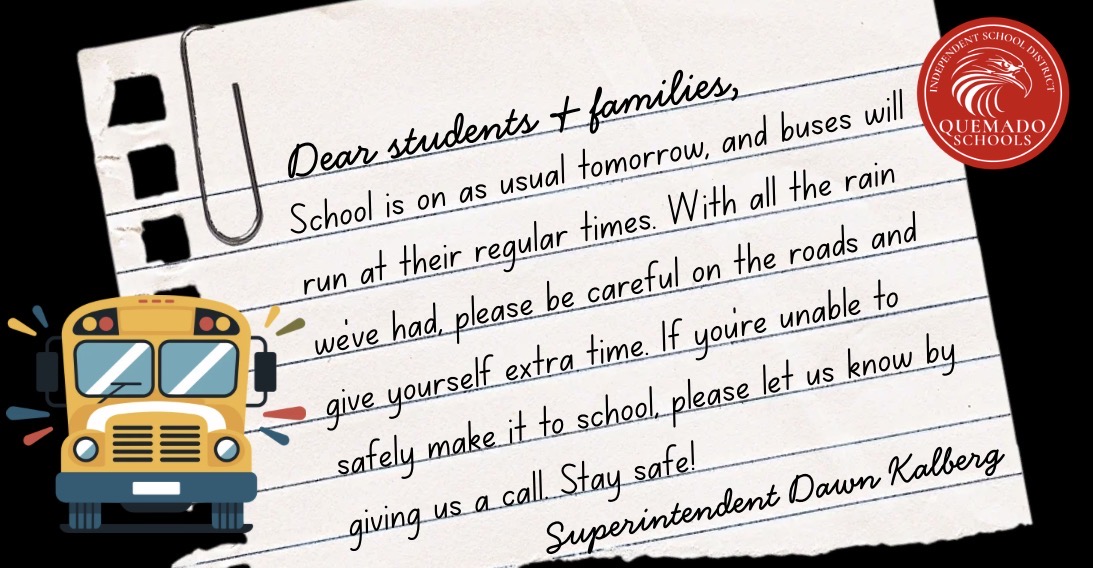 Dear students + families,
School is on as usual tomorrow, and buses will
run at their regular times. With all the rain
we've had, please be careful on the roads and
give yourself extra time. If you're unable to
safely make it to school, please let us know by
giving us a call. Stay safe!
Superintendent Dawn Kalberg
INDEPENDENT SCHOOL DISTRICT
QUEMADO
SCHOOLS